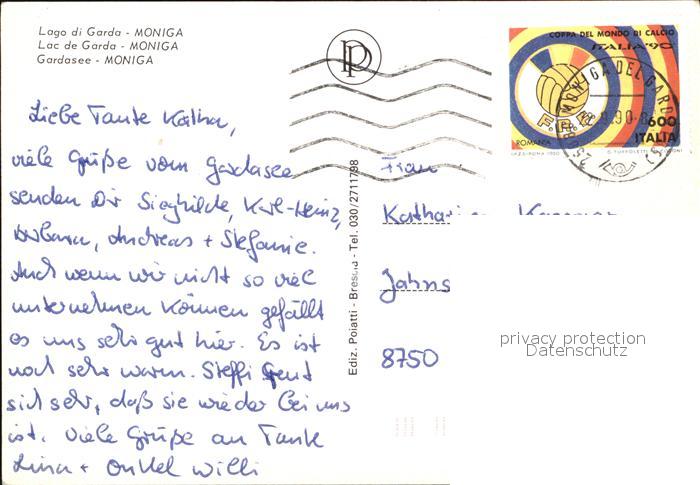 Lago di Garda - MONIGA
Lac de Garda - MONIGA
Gardasee - MONIGA
Liebe Tante Kätha,
viele Grüße vom Gardasee
senden Dir Sieghilde, Karl-Heinz,
Barbara, Andreas + Stefanie.
Auch wenn wir nicht so viel
unternehmen können gefällt
es uns sehr gut hier. Es ist
noch sehr warm. Steffi freut
sich sehr, daß sie wieder bei uns
ist. Viele Grüße an Tante
Lina + Onkel Willi
Ediz. Poiatti - Brescia - Tel. 030/2711798
COPPA DEL MONDO DI CALCIO
ITALIA '90
F.R.R.
600
ITALIA
ROMANIA
MONIGA DEL GARDA
Frau
Jahns
8750
privacy protection
Datenschutz